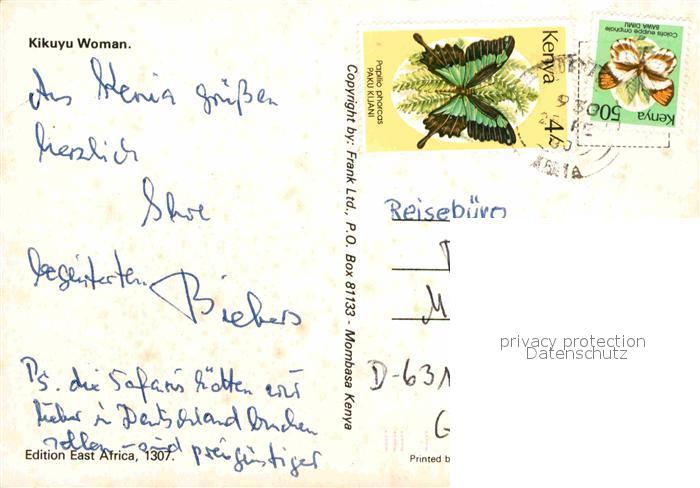 Kikuyu Woman.
Aus Kenia grüßen
herzlich
Ihre
begeisterten
Biebers
Ps. die Safaris hätten wir
lieber in Deutschland buchen
sollen - sind preisgünstiger
Edition East Africa, 1307.
Copyright by: Frank Ltd., P.O. Box 81133 - Mombasa Kenya
Papilio phorcas
PAKU KIJANI
Kenya
4/-
Colotis euippe omphale
Kenya
Reisebüro
M
D-631
G
Printed b
privacy protection
Datenschutz